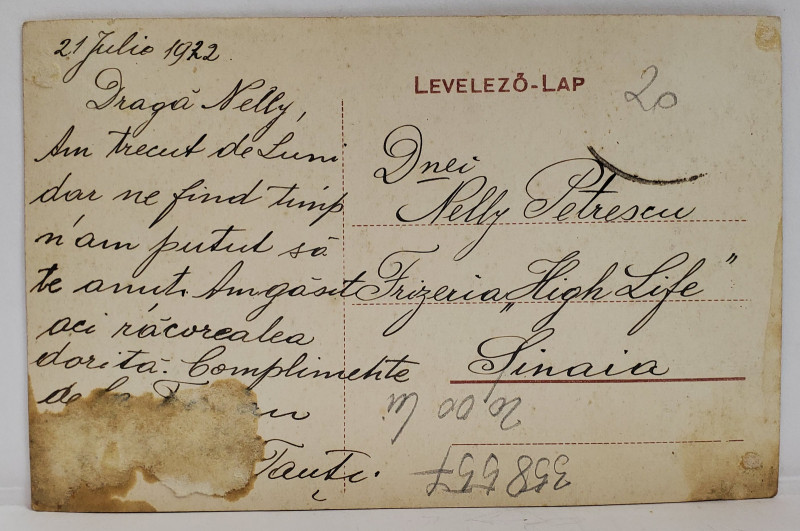 21 Julio 1922.
Dragă Nelly,
Am trecut de Luni
dar ne fiind timp
n'am putut să
te anut. Am găsit
aci răcorealea
dorită. Complimente
de la
Tanți.
LEVELEZŐ-LAP
20
Dnei
Nelly Petrescu
Frizeria „High Life"
Sinaia
20 00 lei
358557